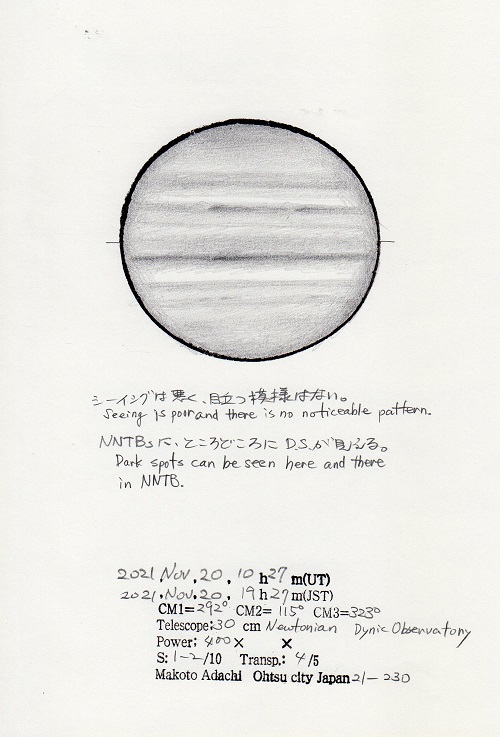 シーイングは悪く、目立つ模様はない。
Seeing is poor and there is no noticeable pattern.
NNTBsに、ところどころにD.S.が見える。
Dark spots can be seen here and there
in NNTB.
2021.Nov.20. 10 h 27 m(UT)
2021.Nov.20. 19 h 27 m(JST)
CM1=292° CM2= 115° CM3=323°
Telescope:30 cm Newtonian Dynic Observatory
Power: 400× ×
S: 1-2/10 Transp.: 4/5
Makoto Adachi Ohtsu city Japan 21-230